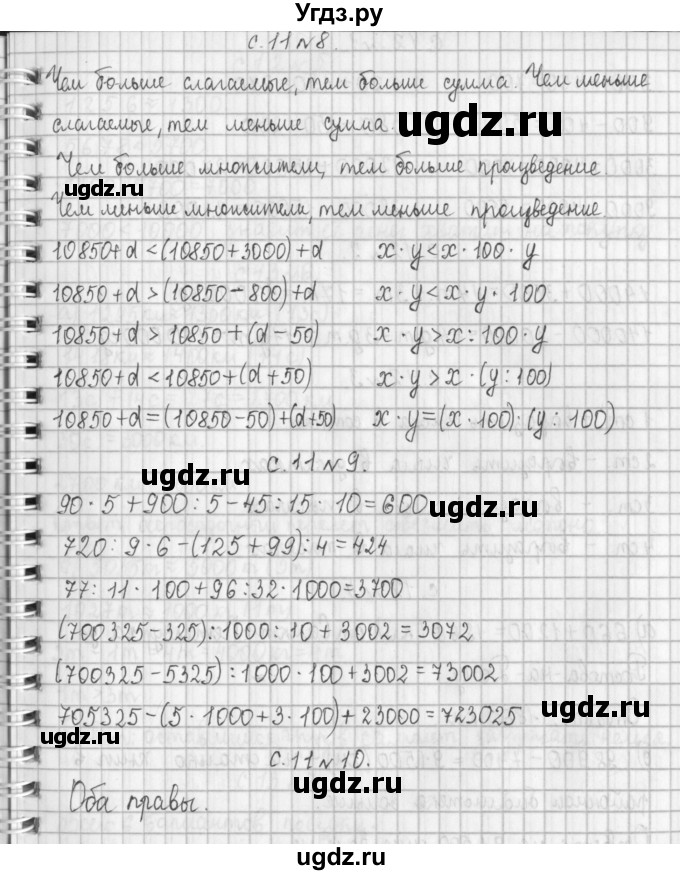 Угдз.ру
с.11 №8.
Чем больше слагаемые, тем больше сумма. Чем меньше
слагаемые, тем меньше сумма.
ugdz.ru
Чем больше множители, тем больше произведение.
ugdz.ru
ugdz.ru
Чем меньше множители, тем меньше произведение.
10850+d<(10850+3000)+d x·y<x·100·y
10850+d>(10850-800)+d x·y<x·y·100
10850+d>10850+(d-50) x·y>x:100·y
10850+d<10850+(d+50) x·y>x·(y:100)
10850+d=(10850-50)+(d+50) x·y=(x·100)·(y:100)
с.11 №9.
ugdz.ru
90·5+900:5-45:15·10=600
ugdz.ru
720:9·6-(125+99):4=424
77:11·100+96:32·1000=3700
(700325-325):1000:10+3002=3072
(700325-5325):1000·100+3002=73002
705325-(5·1000+3·100)+23000=723025
ugdz.ru
ugdz.ru
с.11 №10.
ugdz.ru
Оба правы.
ugdz.ru
ugdz.ru